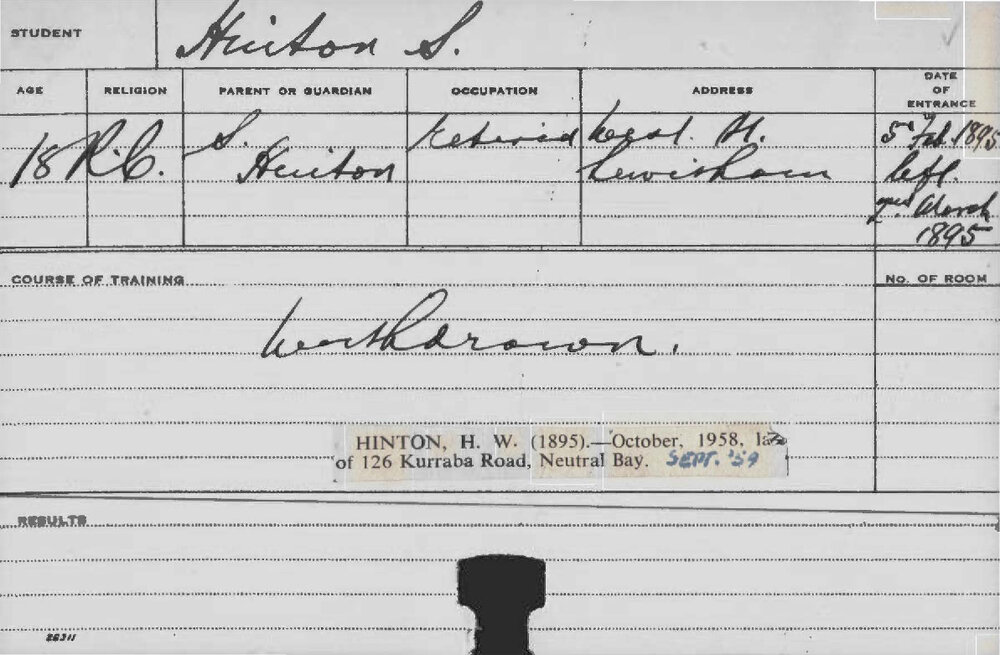 STUDENT
Hinton S.
AGE RELIGION PARENT OR GUARDIAN OCCUPATION ADDRESS DATE OF ENTRANCE
18 R.C. S. Hinton Retired St. Lewisham 5 Feb. 1895
left
March
1895
COURSE OF TRAINING
No. OF ROOM
Withdrawn.
HINTON, H. W. (1895).—October, 1958, la
of 126 Kurraba Road, Neutral Bay. SEPT. '59
RESULTS
26311